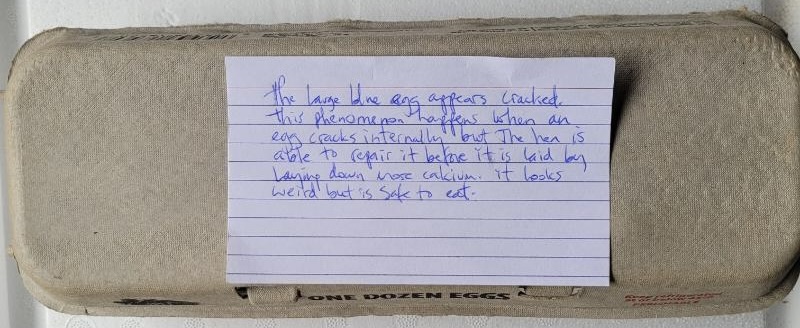 The large blue egg appears cracked.
this phenomenon happens when an
egg cracks internally but The hen is
able to repair it before it is laid by
laying down more calcium. it looks
weird but is safe to eat.
ONE DOZEN EGGS